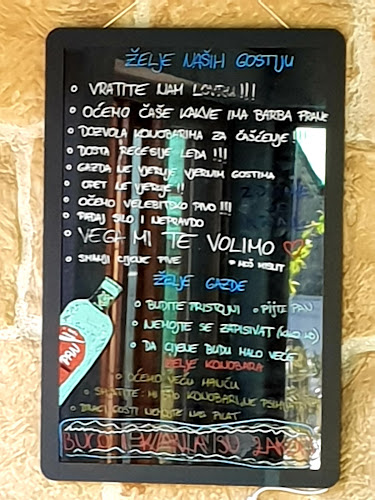 ŽELJE NAŠIH GOSTIJU
VRATITE NAM LOVRU!!!
OĆEMO ČAŠE KAKVE IMA BARBA PRANE
DOZVOLA KONOBARIMA ZA ČAŠĆENJE!!!
DOSTA RECESIJE LEDA!!!
GAZDA NE VJERUJE VJERNIM GOSTIMA
OPET NE VJERUJE!!
OĆEMO VELEBITSKO PIVO!!!
PADAJ SILO I NEPRAVDO
VEGI MI TE VOLIMO
SMANJI CIJENE PIVE
* MOŠ MISLIT
ŽELJE GAZDE
BUDITE PRISTOJNI
PIJTE PAN
NEMOJTE SE ZAPISIVAT
DA CIJENE BUDU MALO VEĆE
ŽELJE KONOBARA
OĆEMO VEĆU MANĆU
DRAGI GOSTI NEMOJTE NAS PILAT
PAN